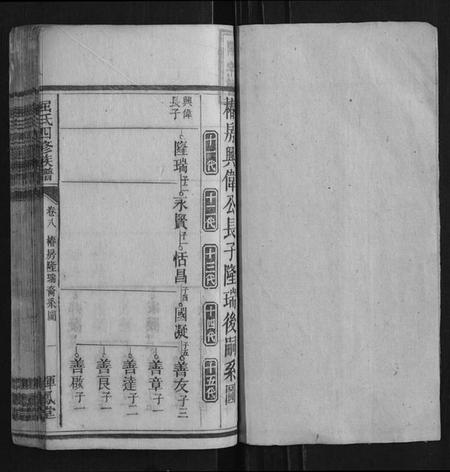 椿房興偉公長子隆瑞後嗣系圖
十一代
十二代
十三代
十四代
十五代
興偉
長子
隆瑞子一
永賢子一
恬昌子四
國凝子五
善友子三
善章子一
善達子二
善良子一
善徵子一
屈氏四修族譜
卷八
椿房隆瑞裔系圖
一
暉鳳堂